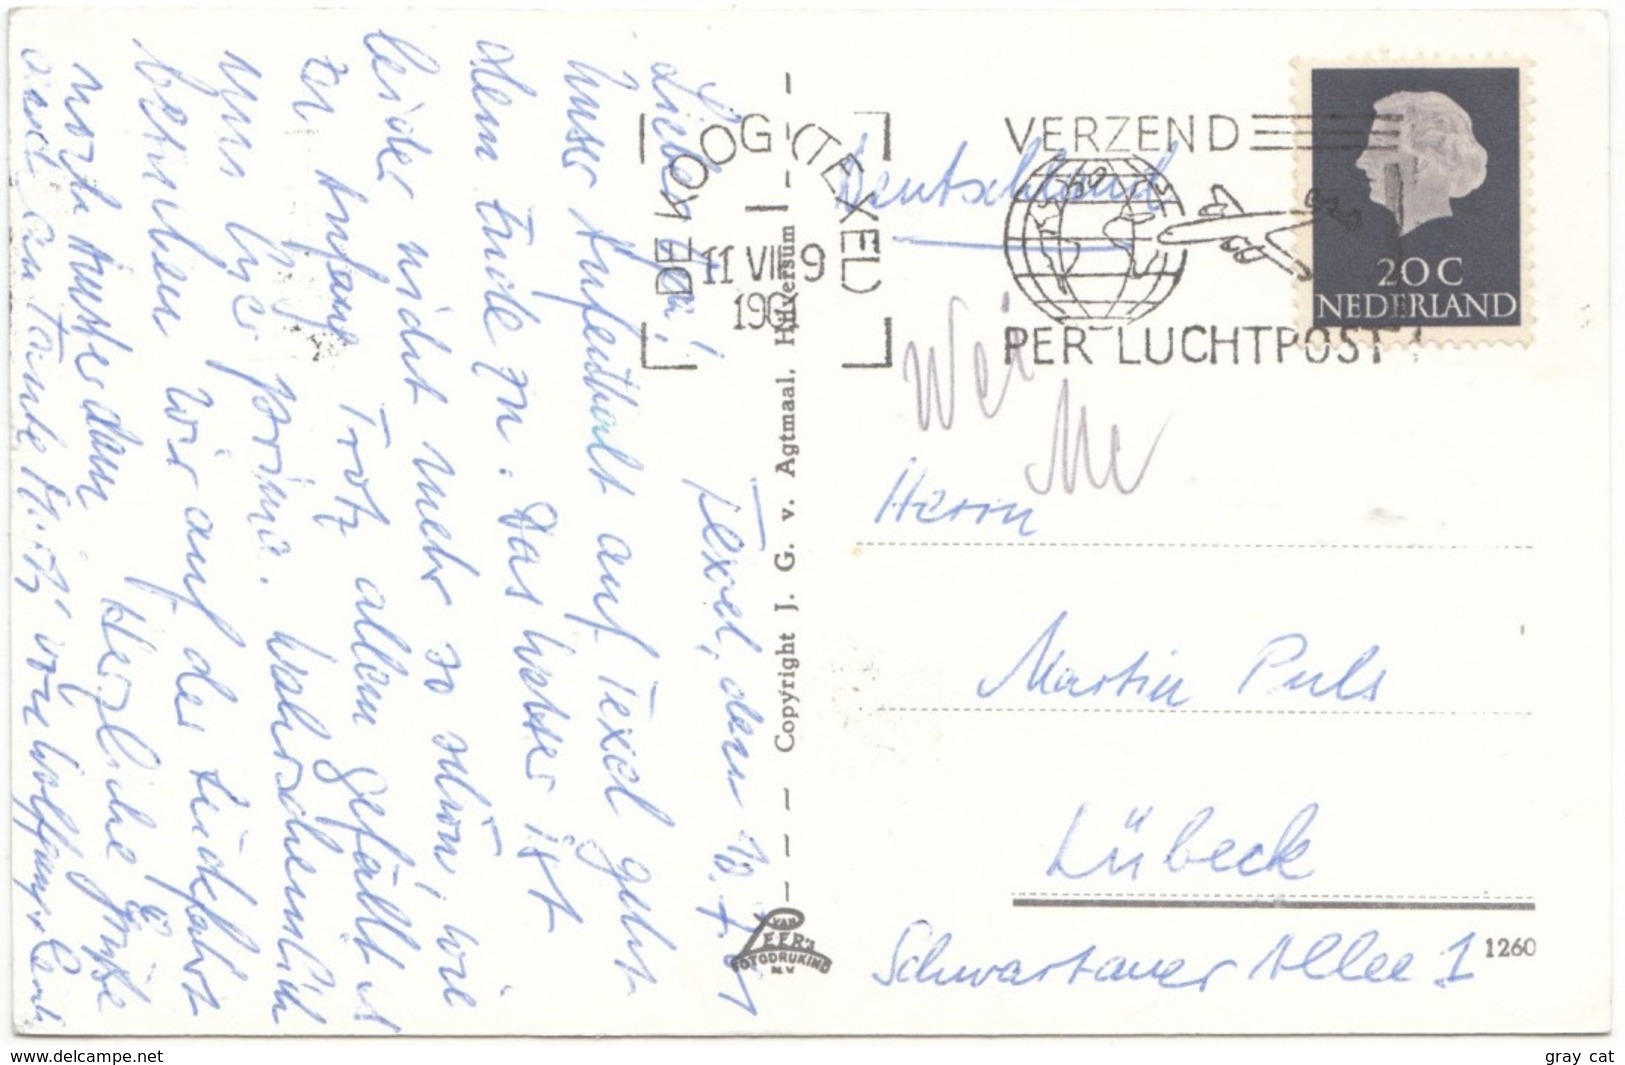 Texel, den 10.7.61
Lieber Opa!
Unser Aufenthalt auf Texel geht
dem Ende zu. Das Wetter ist
leider nicht mehr so schön, wie
zu Anfang. Trotz allem gefällt es
uns hier prima. Wahrscheinlich
bemühen wir auf der Rückfahrt
noch Amsterdam. Herzliche Grüße
auch an Tante von Wolfgang
DE KOOG (TEXEL)
11 VII 9
196
VERZEND
PER LUCHTPOST
20 C
NEDERLAND
Deutschland
Herrn
Martin Puls
Lübeck
Schwartauer Allee 1
1260
Copyright J. G. v. Agtmaal, Hilversum
VAN
LEER's
FOTODRUKIND
N.V.
www.delcampe.net
gray cat